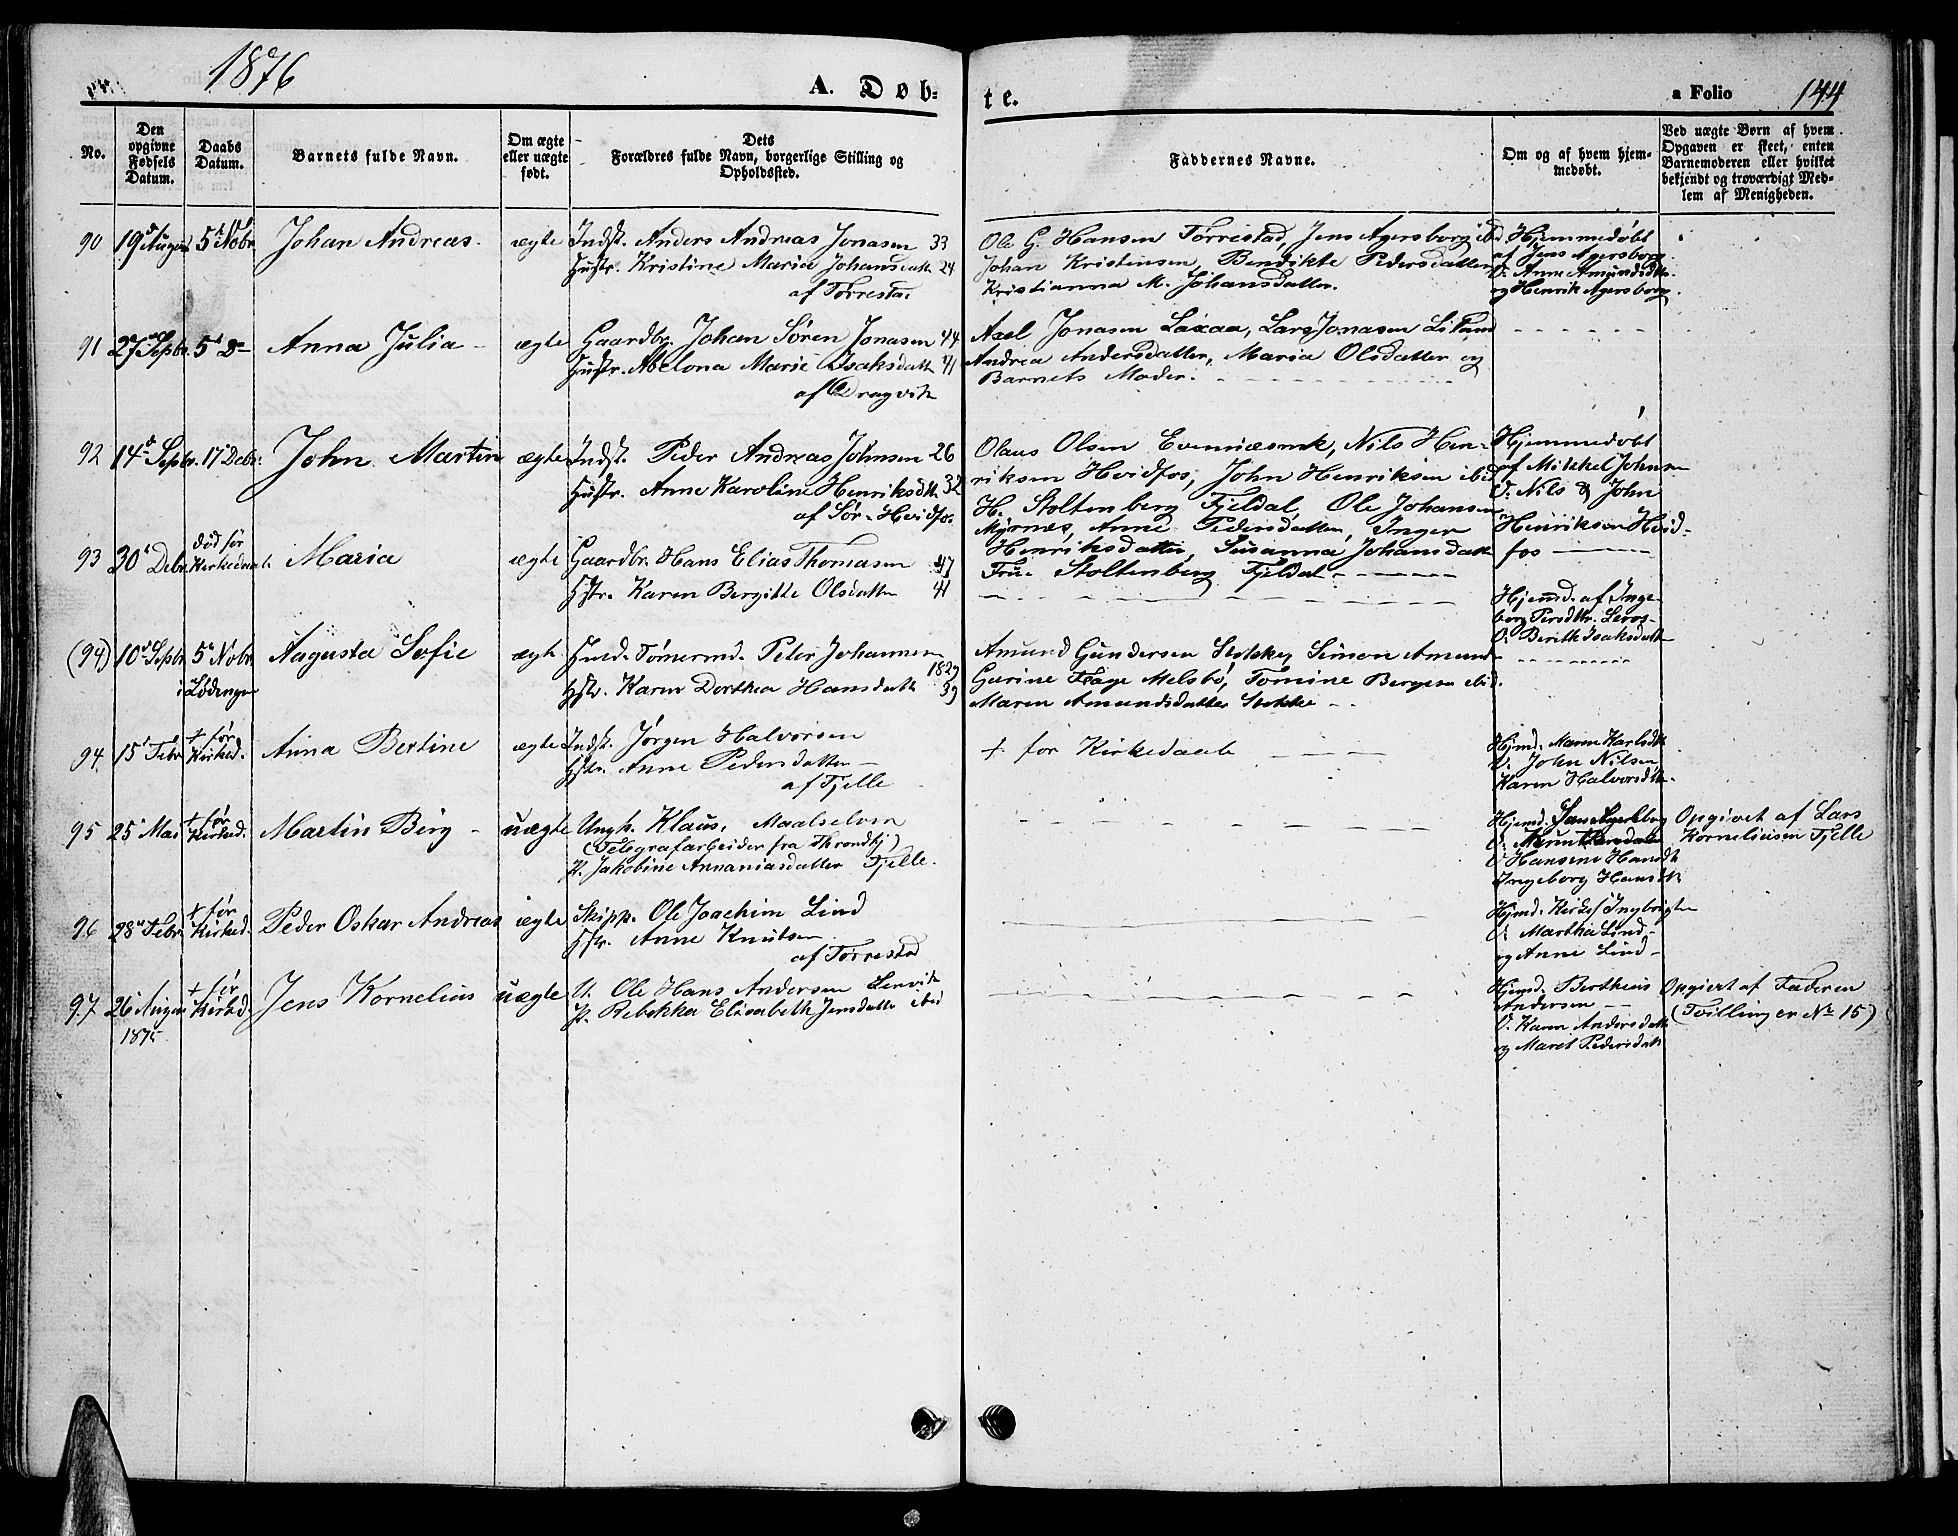 1876
A. Døb-
te.
a Folio 144
No.
Den opgivne Fødsels Datum.
Daabs Datum.
Barnets fulde Navn.
Om ægte eller uægte født.
Dets Forældres fulde Navn, borgerlige Stilling og Opholdssted.
Faddernes Navne.
Om og af hvem hjemmedøbt.
Ved uægte Børn af hvem Opgaven er skeet, enten Barnemoderen eller hvilket bekjendt og troværdigt Medlem af Menigheden.
90 19 August 5 Nobr Johan Andreas ægte Indst. Anders Andreas Jonasen 33
Hustr. Kristine Maria Johansdatt 24
af Tørrestad
Ole G. Hansen Tørrestad, Jens Agersborg ibd
Johan Kristensen, Bendikte Pedersdatter
Kristianna M. Johansdatter.
Hjemmedøbt
af Jens Agersborg
V. Anne Amundsdtr
og Henrik Agersborg
91 27 Septbr 5 D- Anna Julia ægte Gaardbr. Johan Søren Jonasen 44
Hustr. Abelona Marie Isaksdatt 41
af Dragvik
Axel Jonasen Laxaa, Lars Jonasen
Andrea Andersdatter, Maria Olsdatter og
Barnets Moder.
92 14 Septbr. 17 Debr. John Martin ægte Indst. Peder Andreas Johnsen 26
Hustr. Anne Karoline Henriksdtr 32
af Sør-Hvidfos
Olaus Olsen Evenæsmk, Nils Hen-
riksen Hvidfos, John Henriksen ibid
H. Stoltenberg Fjeldal, Ole Johansen
Myrnes, Anne Pedersdatter, Inger
Henriksdatter, Susanna Johansdatt
Frue Stoltenberg Fjeldal
Hjemmedøbt
af Mikkel Johnsen
V. Nils & John
Henriksen Hvid-
fos
93 30 Debr død før Kirkedaab. Maria ægte Gaardbr. Hans Elias Thomasen 47
Hstr. Karen Bergitte Olsdatter 41
Hjemd. af Inge-
borg Persdtr. Leros
V. Berith Isaksdatt
(94) 10 Septbr 5 Nobr i Lødingen Augusta Sofie ægte Hmd. Tømermd. Peter Johannesen 1829
Hstr. Karen Dorthea Hansdatt 39
Amund Gundersen Stokke, Simon Amunds
Gurine Hage Melsbø, Tomine Bergesen ibid.
Maren Amundsdatter Stokke
94. 15 Febr † før Kirked. Anna Bertine ægte Indst. Jørgen Halvorsen
Hstr. Anne Pedersdatter
af Fjelle
† før Kirkedaab
Hjmd. Maren Karlsdtr
V. John Nilsen
Karen Halvorsdtr
95 25 Mai † før Kirked. Martin Berg uægte Ungk. Klaus, Maalselven
(Telegrafarbeider fra Throndhj)
P. Jakobine Annaniasdatter Fjelle.
Hjemd. Jens Agersborg
V. Hansine Hansdtr
Ingeborg Hansdtr
Opgivet af Lars
Korneliussen Fjelle
96 28 Febr † før Kirked. Peder Oskar Andreas ægte Skipp. Ole Joachim Lind
Hstr. Anne Knutsen
af Tørrestad
Hjmd. Kirkes. Ingbrigtsen
V. Martha Lind
og Anne Lind
97 26 August 1875 † før Kirked. Jens Kornelius uægte U. Ole Hans Andersen Lenvik
P. Rebekka Elisabeth Jensdatter ibid
Hjemd. Bertheus
Andersen
V. Karen Andersdatt
og Maret Pedersdatt
Opgivet af Faderen
(Tvilling er No 15)